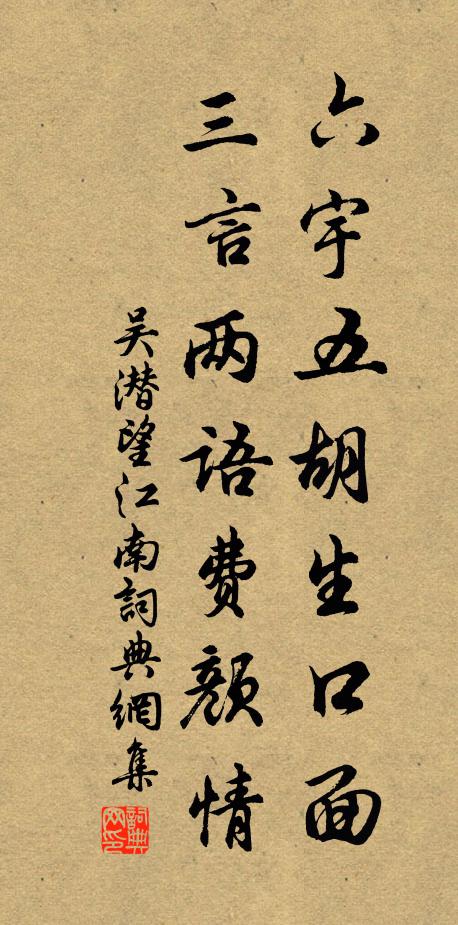 六宇五胡生口面
三言两语费颜情
吴潜望江南詞典網集
詞典网印